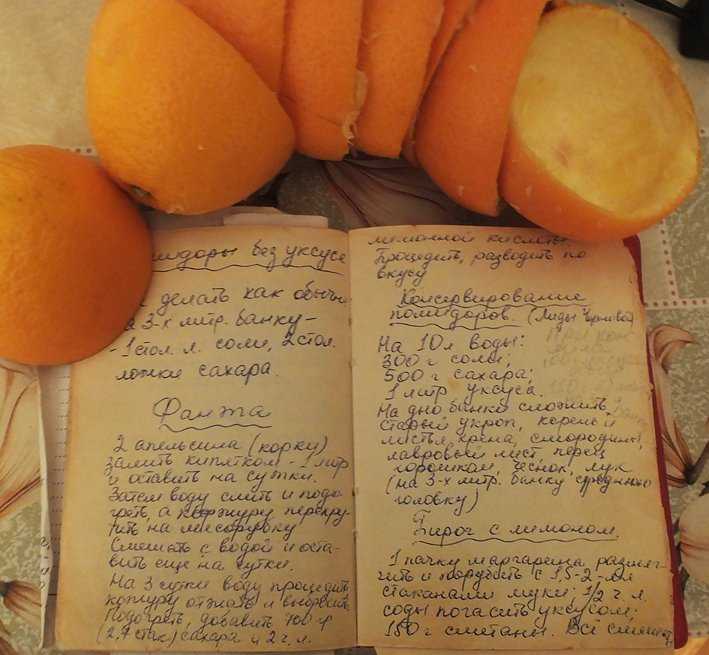 без уксуса
делать как обычн
3-х литр. банку-
-1 стол. л. соли, 2 стол.
ложки сахара.
Фанта
2 апельсина (корки)
залить кипятком - 1 литр
и оставить на сутки.
Затем воду слить и подо
греть, а кожуру перекру
тить на мясорубку
Смешать с водой и оста-
вить еще на сутки.
На 3 сутки воду процедить
кожуру отжать и выбросить
Подогреть, добавить 700 г
(2,7 стак) сахара и 2 ч. л.
лимонной кислоты.
Процедить, разводить по
вкусу
Консервирование
помидоров. (Лиды
На 10 л воды:
300 г соли;
500 г сахара;
1 литр уксуса.
На дно банки сложить
старый укроп, корень и
листья хрена, смородины,
лавровый лист, перец
горошком, чеснок, лук
(на 3-х литр. банку среднюю
головку)
Пирог с лимоном.
1 пачку маргарина размяг-
чить и порубить с 1,5-2-мя
стаканами муки; 1/2 ч. л.
соды погасить уксусом;
150 г сметаны. Всё